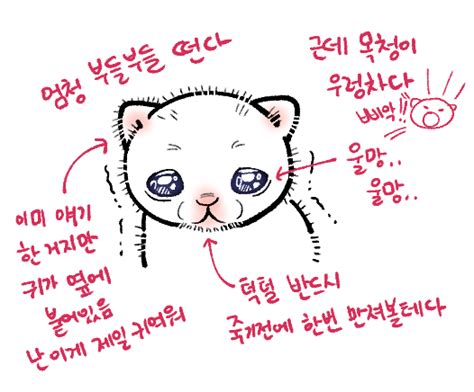 엄청 부들부들 떤다
근데 목청이
우렁차다
삐악!!
울망..
울망..
이미 얘기
한 거지만
귀가 옆에
붙어있음
난 이게 제일 귀여워
턱털 반드시
죽기전에 한번 만져볼테다